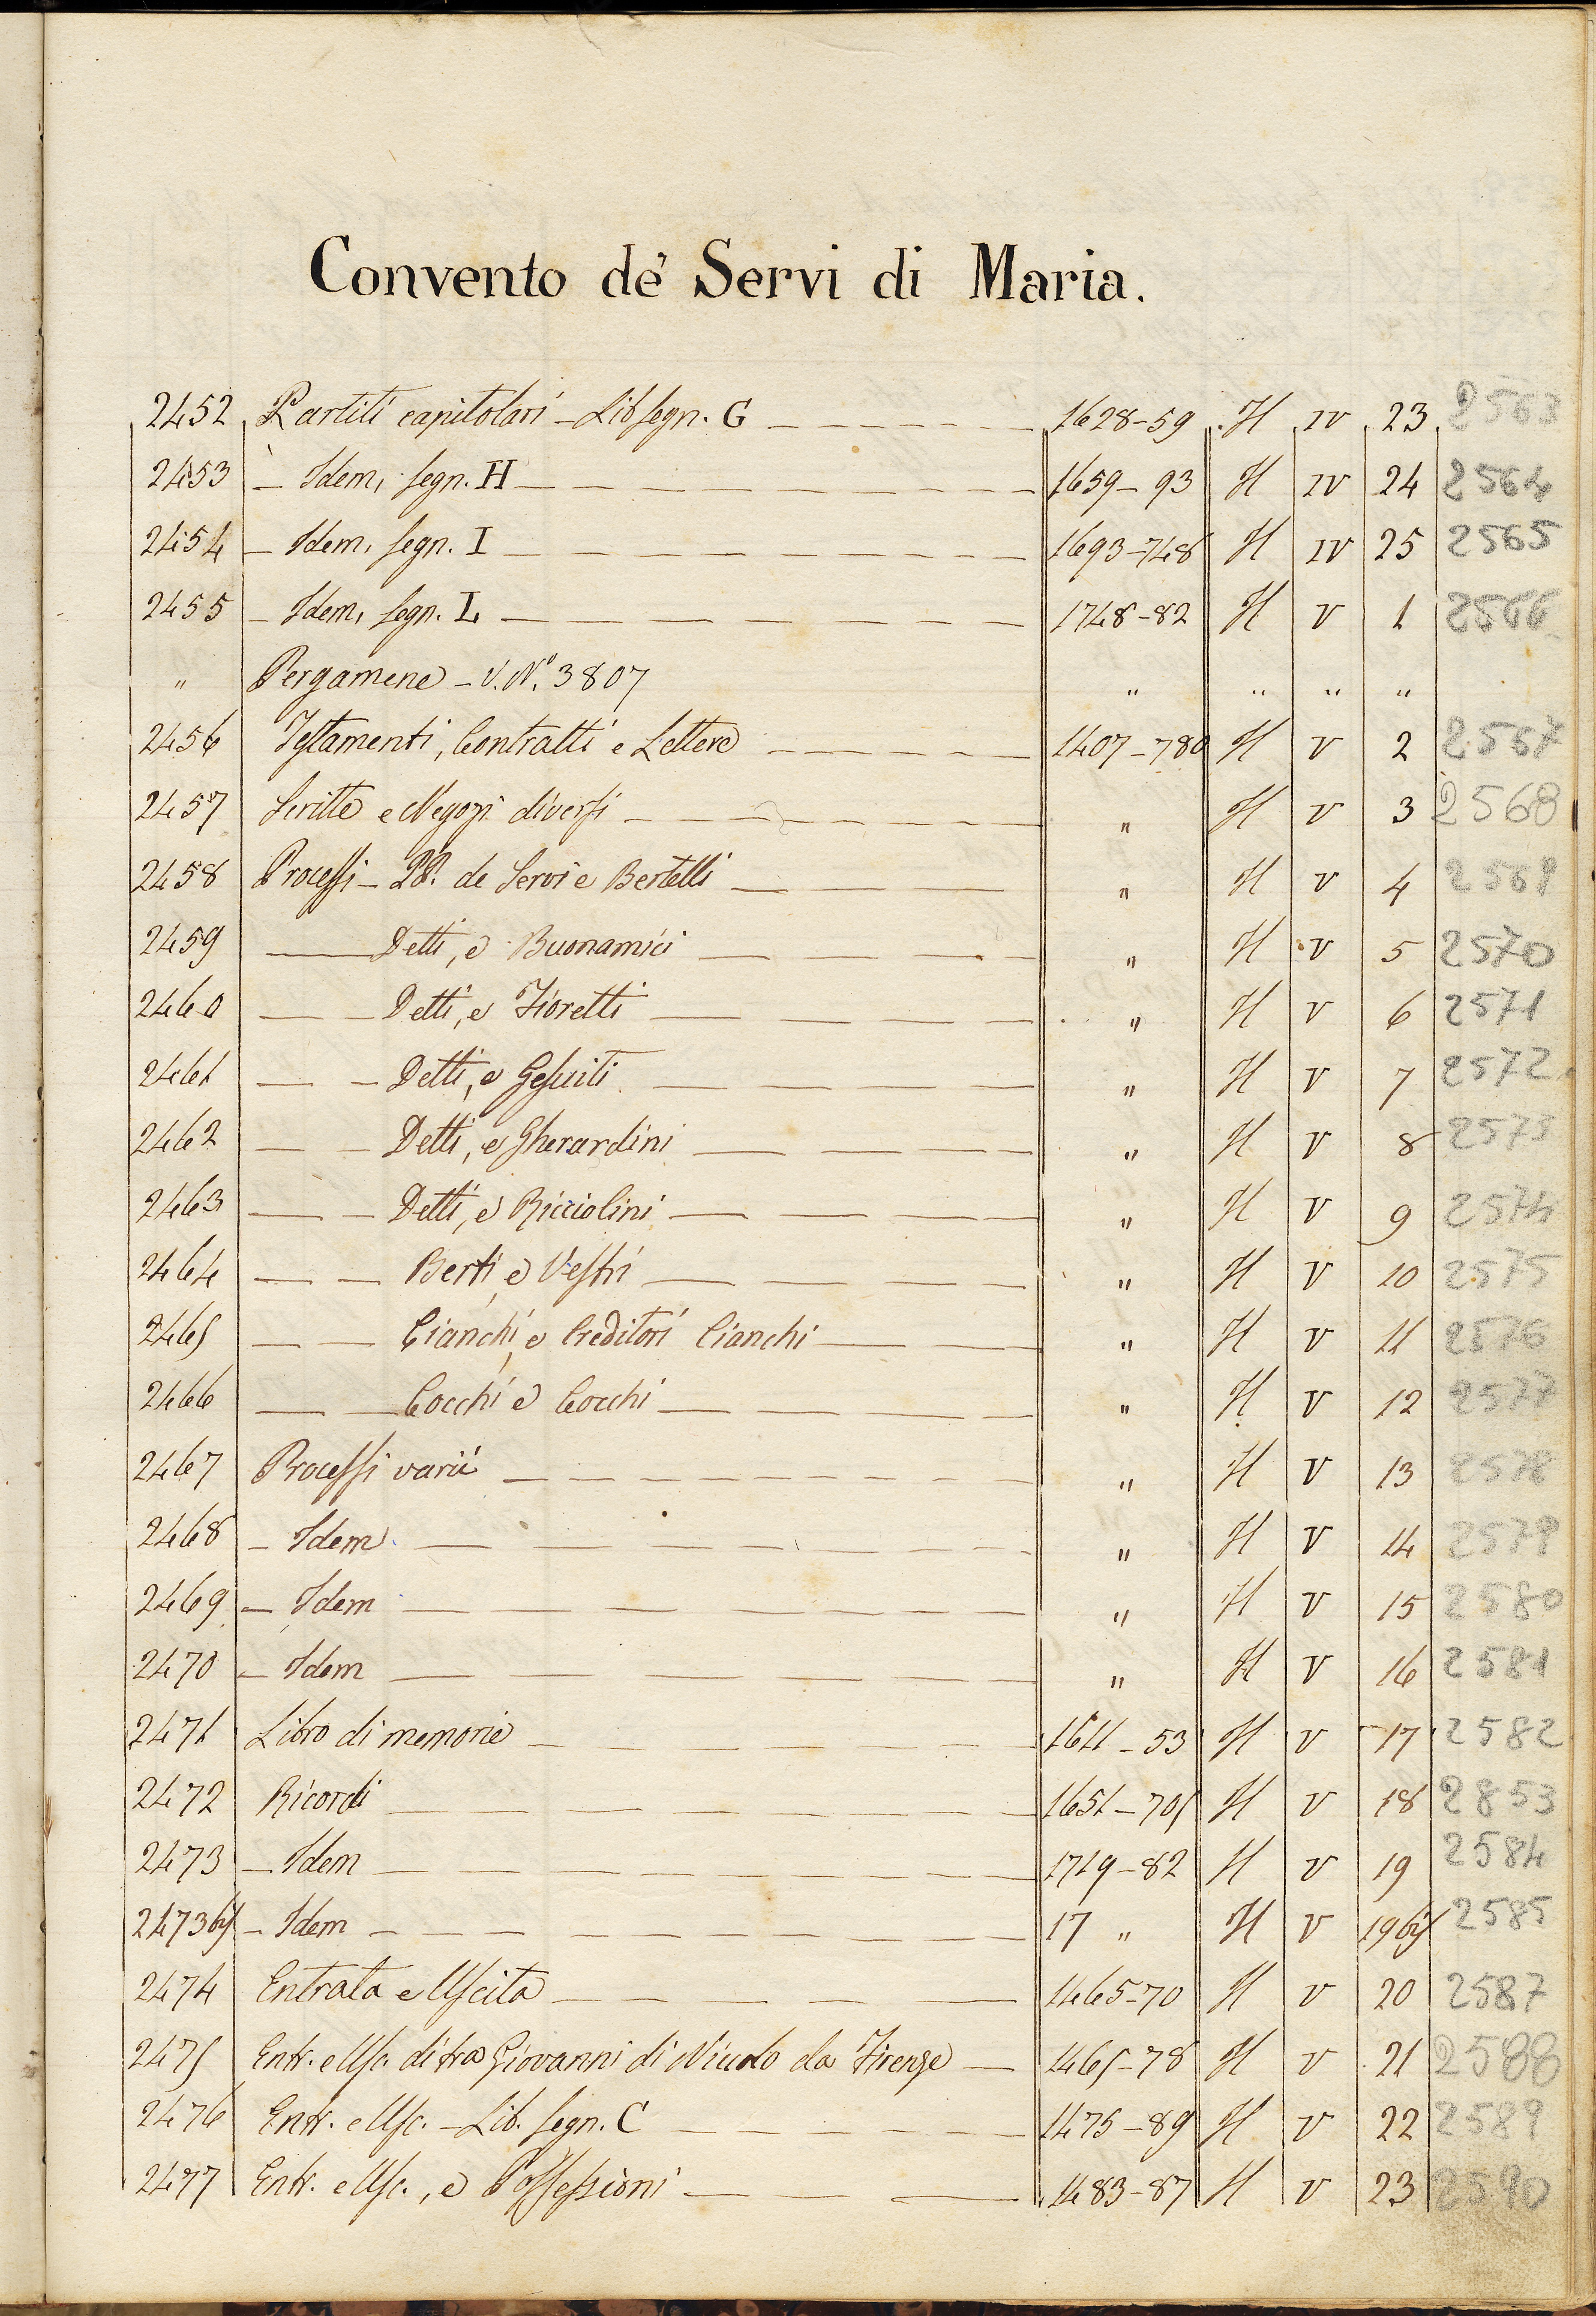 Convento de' Servi di Maria.
2452 Partiti capitolari - Lib segn. G 1628-59 H IV 23 2563
2453 - Idem, segn. H 1659-93 H IV 24 2564
2454 - Idem, segn. I 1693-748 H IV 25 2565
2455 - Idem, segn. L 1748-82 H V 1 2566
" Pergamene - V. N.º 3807 " " " "
2456 Testamenti, Contratti e Lettere 1407-780 H V 2 2567
2457 Scritte e Negozi diversi " H V 3 2568
2458 Processi - PP. de Servi e Bertelli " H V 4 2569
2459 Detti, e Buonamici " H V 5 2570
2460 Detti, e Fioretti " H V 6 2571
2461 Detti, e Gesuiti " H V 7 2572
2462 Detti, e Gherardini " H V 8 2573
2463 Detti, e Ricciolini " H V 9 2574
2464 Berti, e Vestri " H V 10 2575
2465 Cianchi, e Creditori Cianchi " H V 11 2576
2466 Cocchi e Cocchi " H V 12 2577
2467 Processi varii " H V 13 2578
2468 - Idem " H V 14 2579
2469 - Idem " H V 15 2580
2470 - Idem " H V 16 2581
2471 Libro di memorie 1611-53 H V 17 2582
2472 Ricordi 1651-705 H V 18 2853
2473 - Idem 1719-82 H V 19 2584
2473 bis - Idem 17 " H V 19 bis 2585
2474 Entrata e Uscita 1465-70 H V 20 2587
2475 Entr. e Usc. di fra Giovanni di Niccolo da Firenze 1465-78 H V 21 2588
2476 Entr. e Usc. - Lib. segn. C 1475-89 H V 22 2589
2477 Entr. e Usc., e Possessioni 1483-87 H V 23 2590